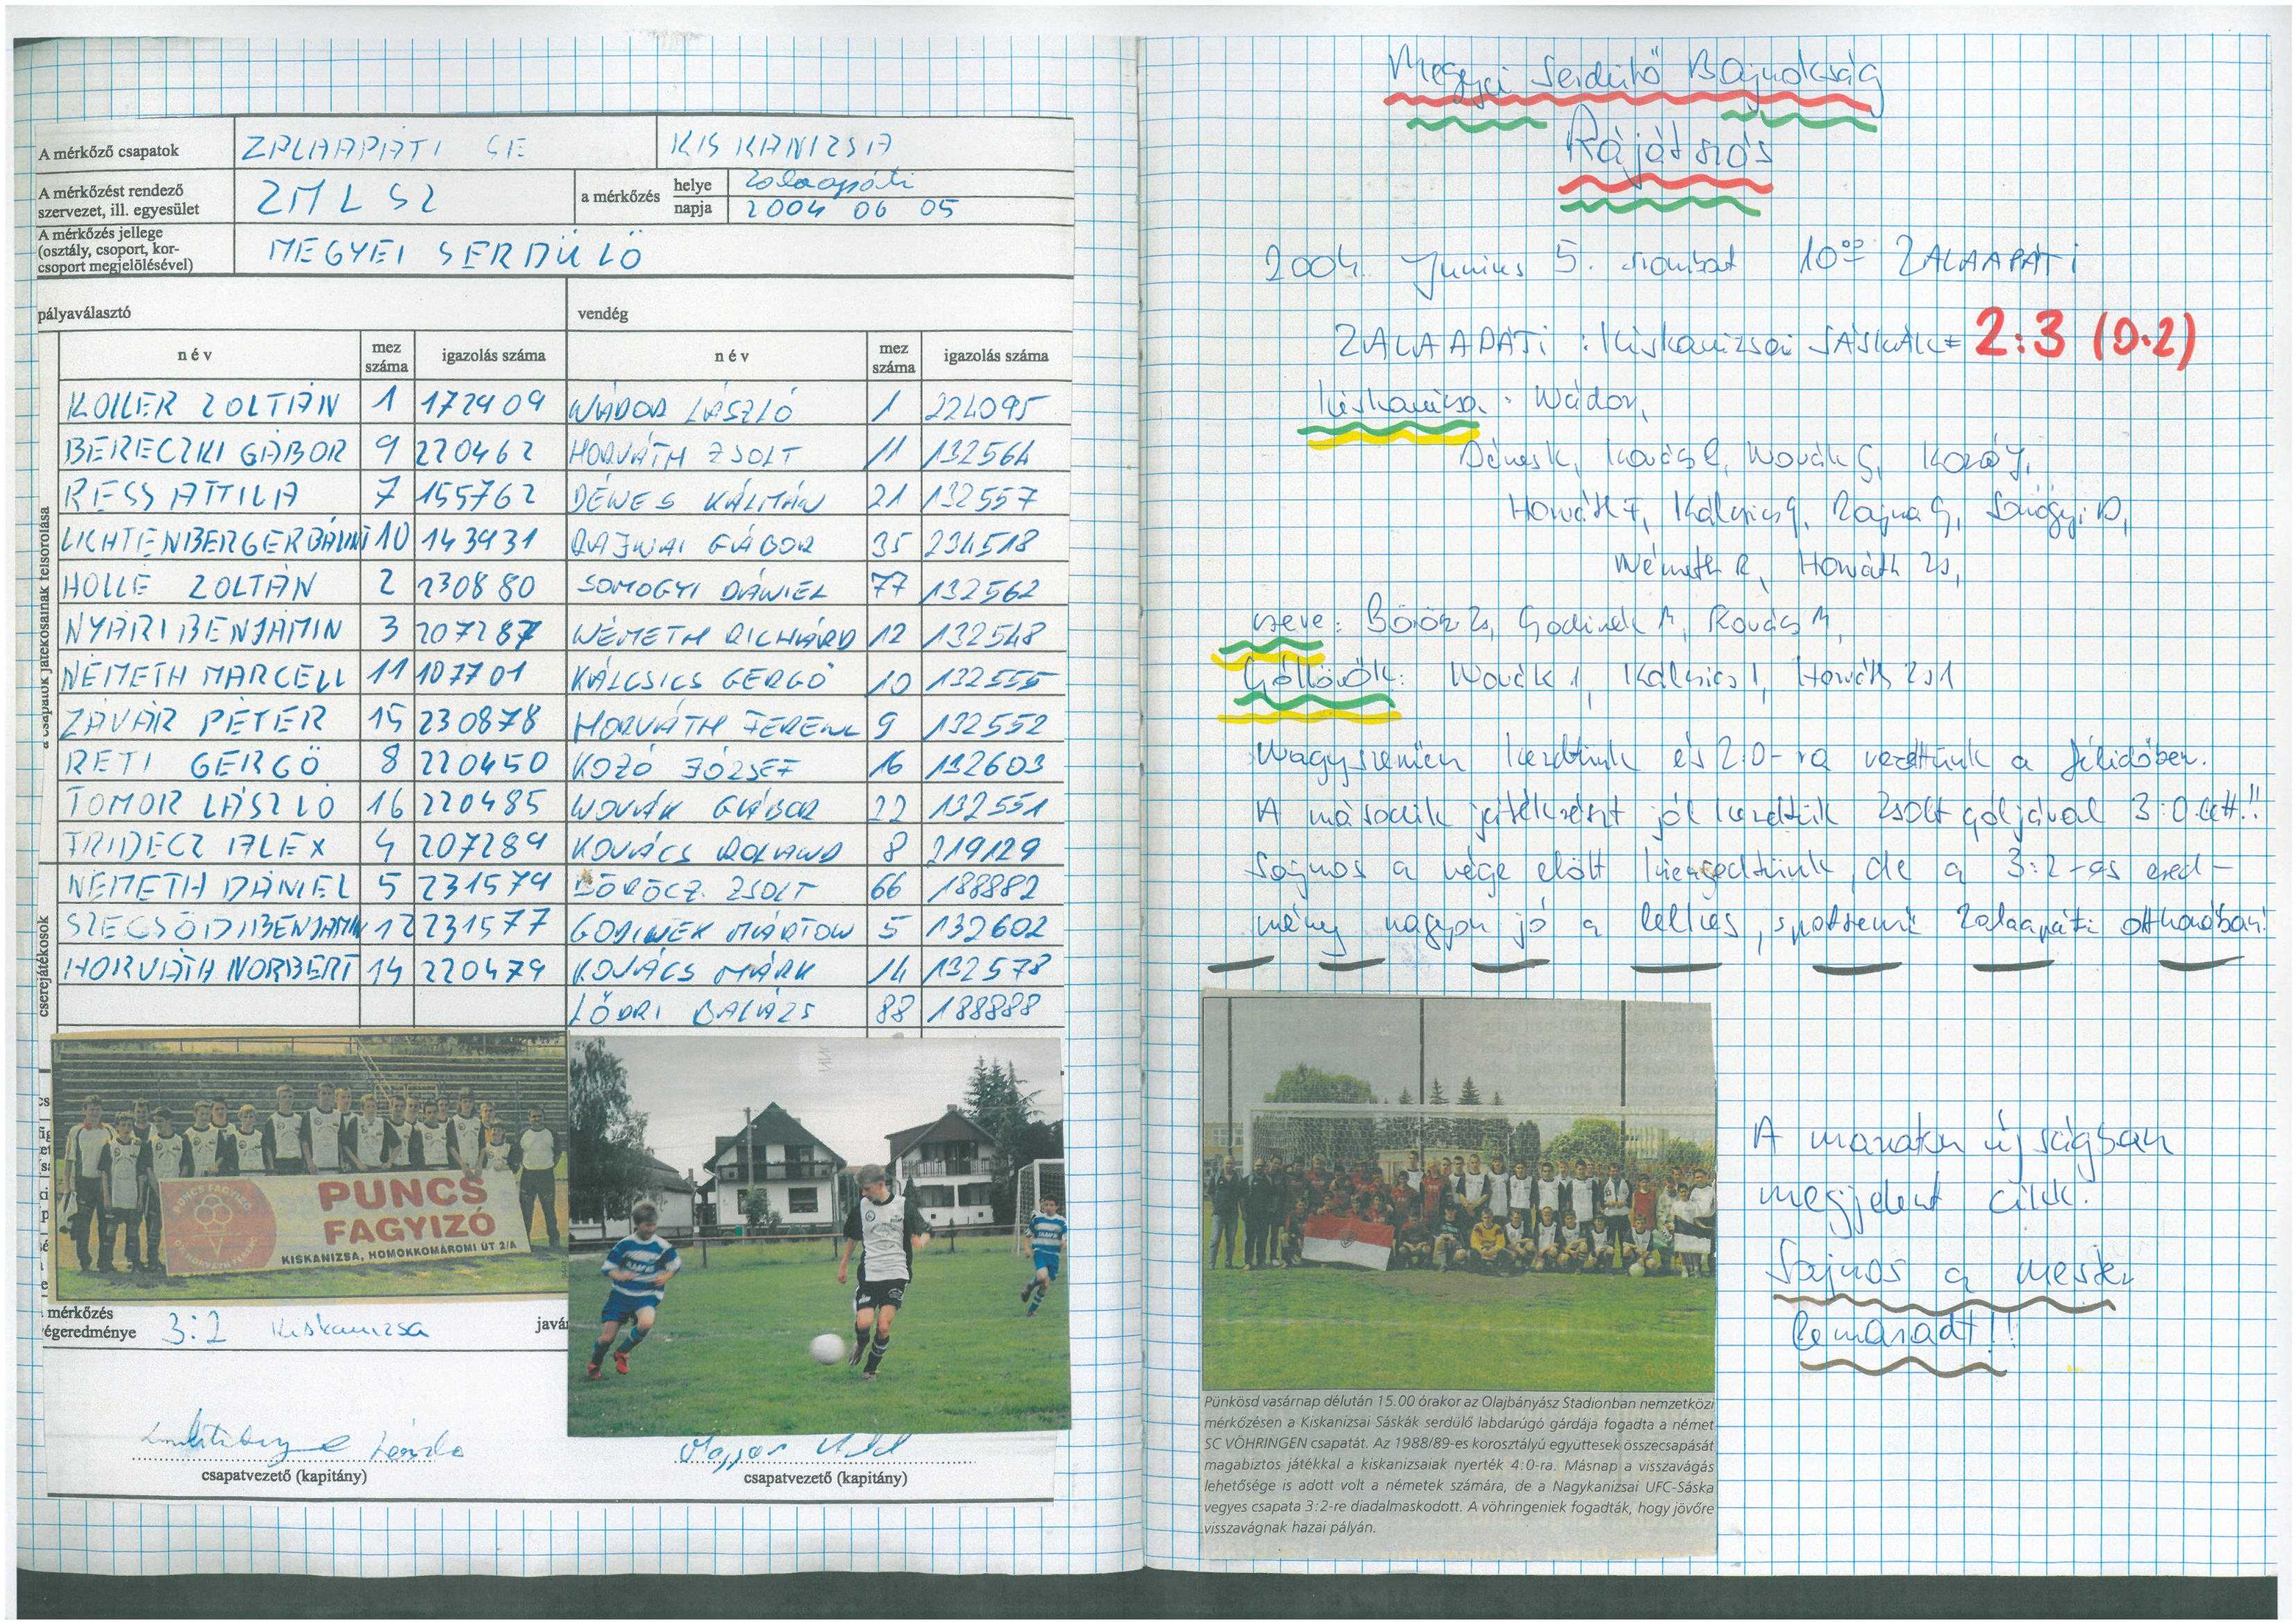 A mérkőző csapatok ZALAAPÁTI SE KISKANIZSA
A mérkőzést rendező szervezet, ill. egyesület ZMLSZ a mérkőzés helye Zalaapáti
napja 2004 06 05
A mérkőzés jellege
(osztály, csoport, kor-
csoport megjelölésével) MEGYEI SERDÜLŐ
pályaválasztó vendég
név mez száma igazolás száma név mez száma igazolás száma
a csapatok játékosainak felsorolása
KOLLER ZOLTÁN 1 172909 WÁDOR LÁSZLÓ 1 224095
BERECZKI GÁBOR 9 220462 HORVÁTH ZSOLT 11 132564
RESS ATTILA 7 155762 DÉNES KÁLMÁN 21 132557
LICHTENBERGER BÁLINT 10 143931 RAJNAI GÁBOR 35 234518
HOLLÉ ZOLTÁN 2 230880 SOMOGYI DÁNIEL 77 132562
NYÁRI BENJÁMIN 3 207287 NÉMETH RICHÁRD 12 132548
NÉMETH MARCELL 11 107701 KÁLCSICS GERGŐ 10 132555
ZÁVÁR PÉTER 15 230878 HORVÁTH FERENC 9 132552
RETI GERGŐ 8 220450 KOZÓ JÓZSEF 16 132603
TOMOR LÁSZLÓ 16 220485 NOVÁK GÁBOR 22 132551
TRIDECZ ALEX 4 207289 KOVÁCS ROLAND 8 219129
cserejátékosok
NÉMETH DÁNIEL 5 231579 BÖRÖCZ ZSOLT 66 188882
SZEGSŐDI BENJAMIN 12 231577 GODINEK MÁRTON 5 132602
HORVÁTH NORBERT 14 220479 KOVÁCS MÁRK 14 132578
LŐDRI BALÁZS 88 188888
PUNCS
FAGYIZÓ
KISKANIZSA, HOMOKKOMÁROMI ÚT 2/A
mérkőzés
végeredménye 3:2 Kiskanizsa javá
csapatvezető (kapitány) csapatvezető (kapitány)
Megyei Serdülő Bajnokság
Rájátszás
2004. Junius 5. szombat 10 00 ZALAAPÁTI
ZALAAPÁTI : Kiskanizsai SÁSKÁK = 2:3 (0:2)
Kiskanizsa: Wádor,
Dénes K, Kovács R, Novák G, Kozó J,
Horváth F, Kálcsics G, Rajnai G, Somogyi D,
Németh R, Horváth Zs,
csere: Böröcz Zs, Godinek M, Kovács M,
Góllövők: Novák 1, Kálcsics 1, Horváth Zs 1
Nagyszerűen kezdtünk és 2:0-ra vezettünk a félidőben.
A második játékrészt jól kezdtük Zsolt góljával 3:0 lett!!
Sajnos a vége előtt kiengedtünk, de a 3:2-es ered-
mény nagyon jó a lelkes, sportszerű Zalaapáti otthonában!
A maraton újságban
megjelent cikk.
Sajnos a mester
lemaradt!!
Pünkösd vasárnap délután 15.00 órakor az Olajbányász Stadionban nemzetközi
mérkőzésen a Kiskanizsai Sáskák serdülő labdarúgó gárdája fogadta a német
SC VÖHRINGEN csapatát. Az 1988/89-es korosztályú együttesek összecsapását
magabiztos játékkal a kiskanizsaiak nyerték 4:0-ra. Másnap a visszavágás
lehetősége is adott volt a németek számára, de a Nagykanizsai UFC-Sáska
vegyes csapata 3:2-re diadalmaskodott. A vöhringeniek fogadták, hogy jövőre
visszavágnak hazai pályán.